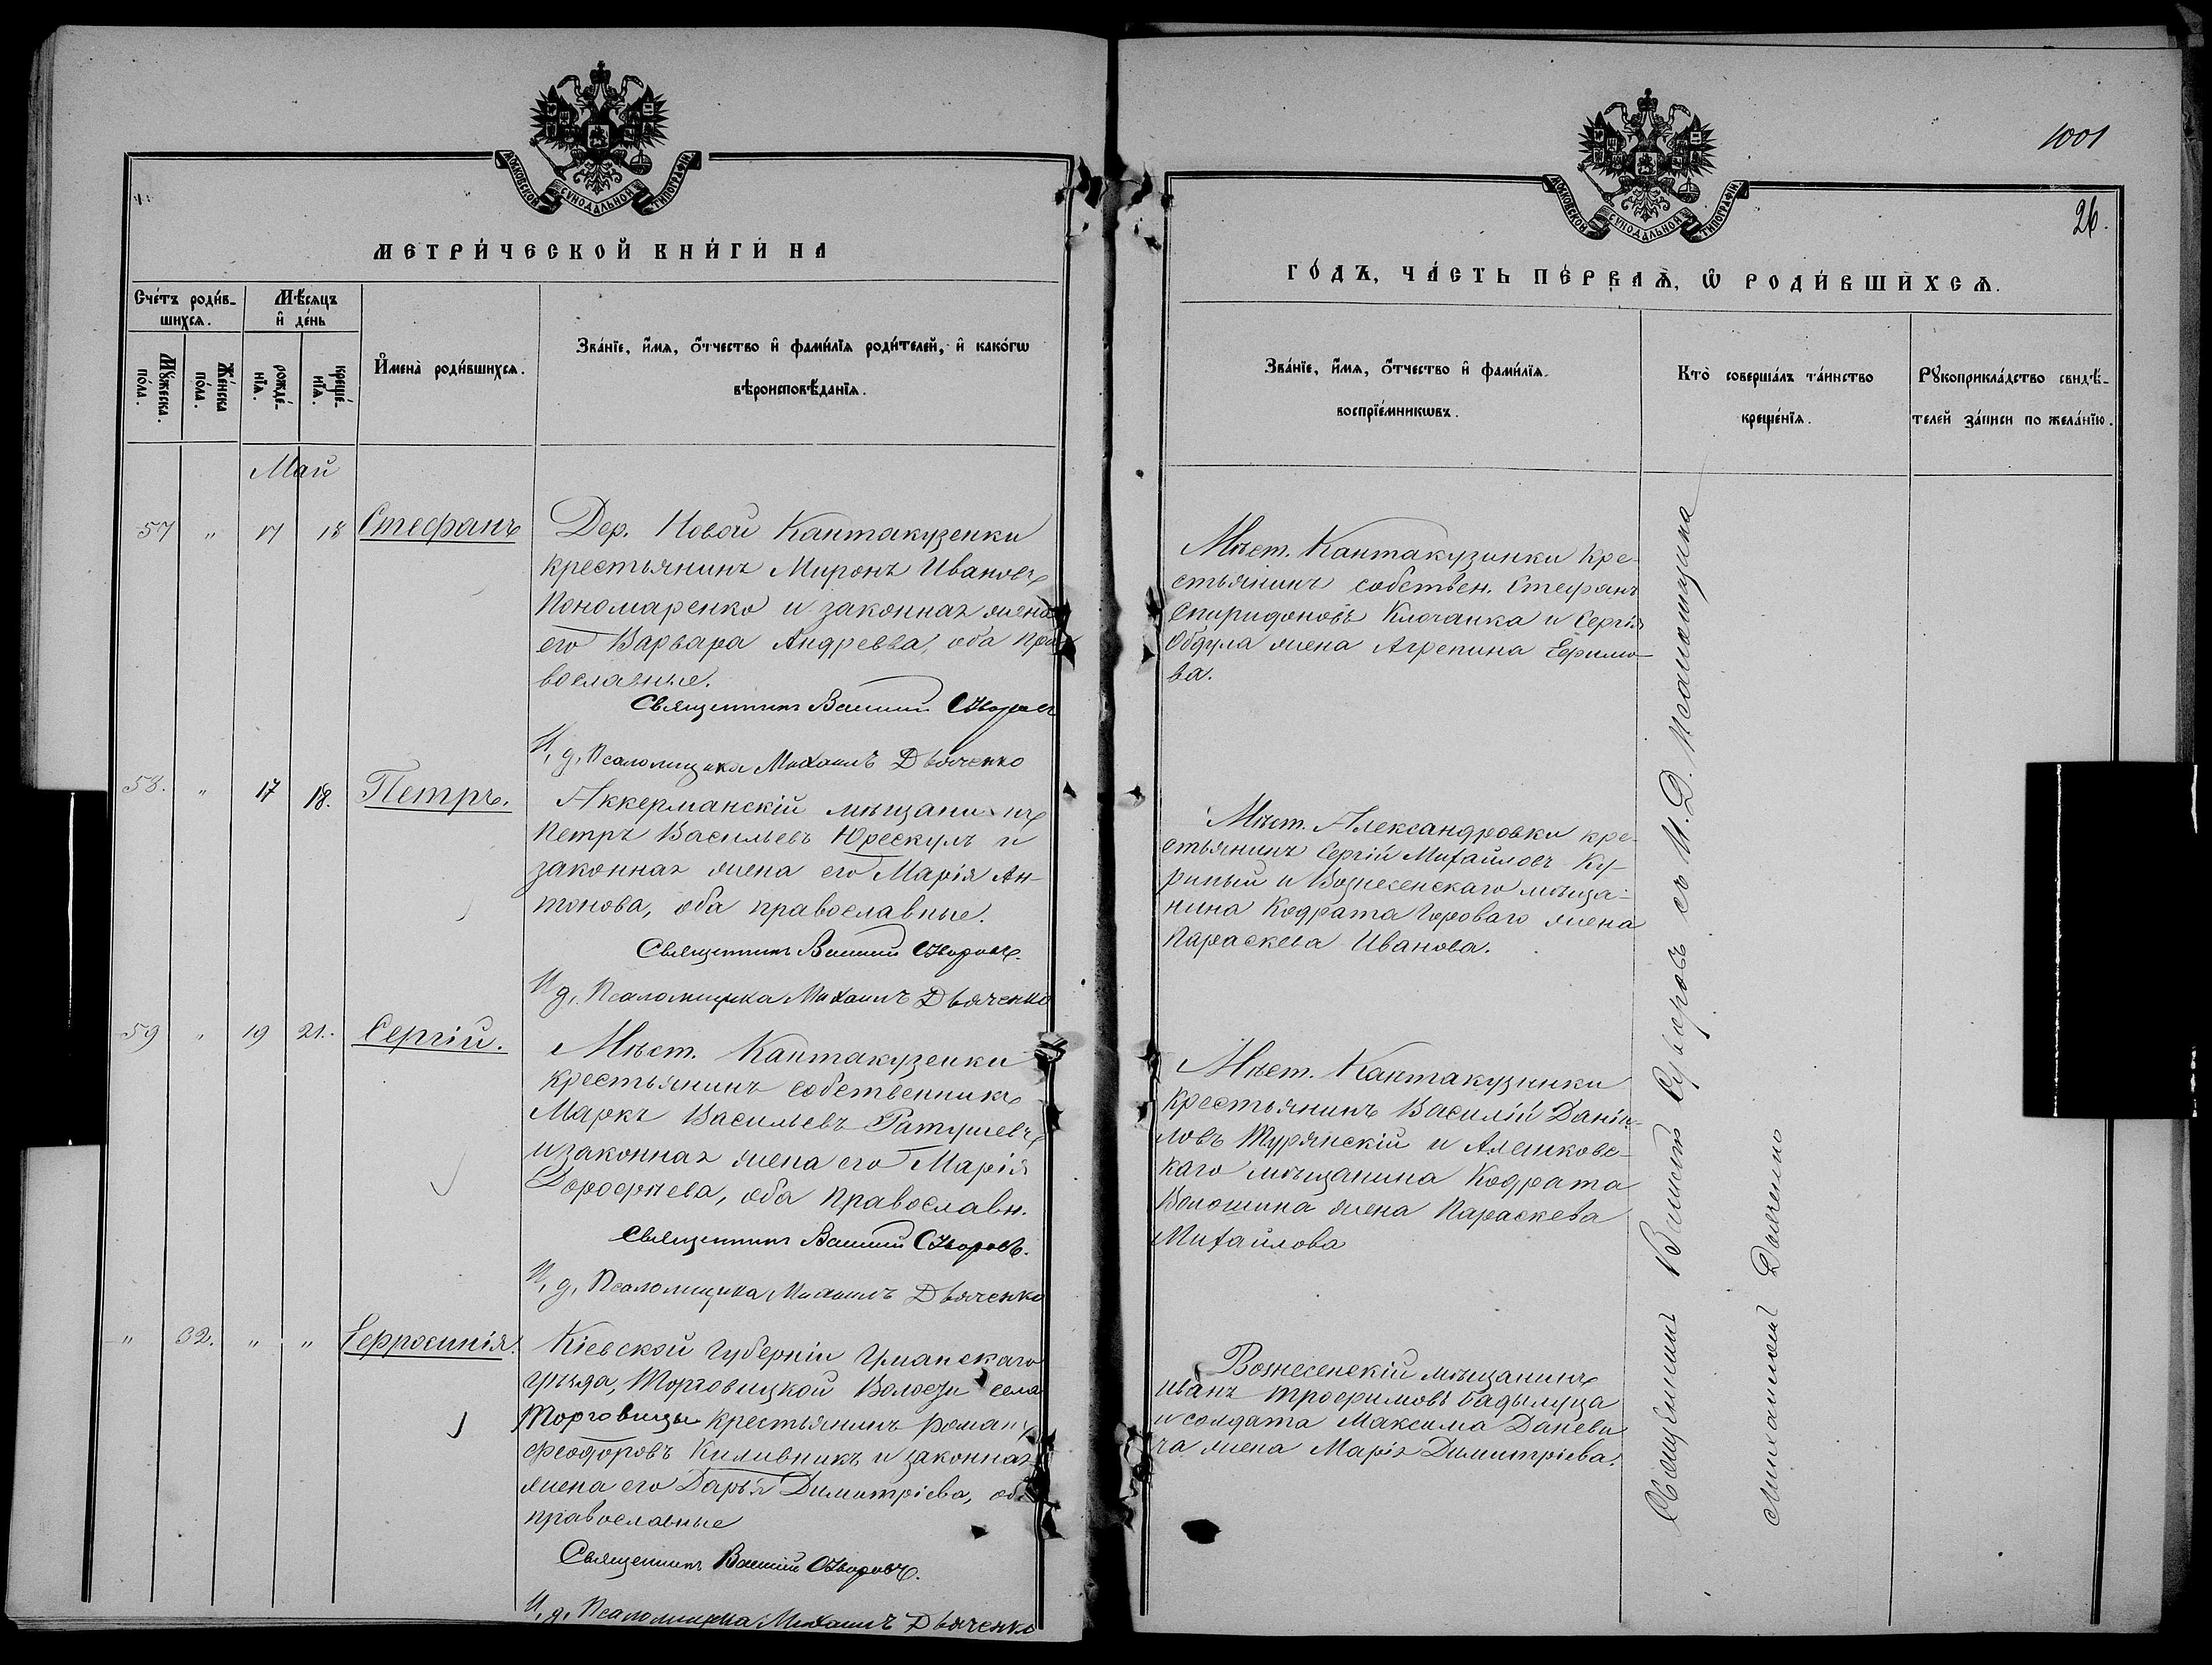 МОСКОВСКОЙ СУНОДАЛЬНОЙ ТИПОГРАФІИ
МЕТРИ́ЧЕСКОЙ КНИ́ГИ НА
Сче́тъ роди́в-
шихсѧ.
Мѣ́сяцъ
и҆ де́нь
Мꙋ́жеска по́ла.
Же́нска по́ла.
рожде́-
нїѧ.
креще́-
нїѧ.
И҆мена̀ роди́вшихсѧ.
Зва́нїе, и҆́мѧ, ѻ҆́тчество и҆ фами́лїѧ роди́телей, и҆ како́гѡ
вѣроисповѣ́данїѧ.
Май
57 " 17 18 Стефанъ
Дер. Новой Кантакузенки
крестьянинъ Миронъ Ивановъ
Пономаренко и законная жена
его Варвара Андреева, оба пра
вославные.
Священникъ Василій Суворовъ
И. д. Псаломщика Михаилъ Дьяченко
58. " 17 18. Петръ.
Аккерманскій мѣщанинъ
Петръ Васильевъ Юрескулъ и
законная жена его Марія Ан-
тонова, оба православные.
Священникъ Василій Суворовъ.
И. д. Псаломщика Михаилъ Дьяченко
59 " 19 21. Сергій.
Мѣст. Кантакузенки
крестьянинъ собственникъ
Маркъ Васильевъ Ратушевъ
и законная жена его Марія
Дорофѣева, оба православн.
Священникъ Василій Суворовъ.
И. д. Псаломщика Михаилъ Дьяченко
" 32. " " Ефросинія.
Кіевской губерніи Уманскаго
уѣзда, Торговицкой Волости села
Торговицы крестьянинъ Романъ
Феодоровъ Киливникъ и законная
жена его Дарья Димитріева, оба
православные
Священникъ Василій Суворовъ.
И. д. Псаломщика Михаилъ Дьяченко
1001
26.
МОСКОВСКОЙ СУНОДАЛЬНОЙ ТИПОГРАФІИ
ГО́ДЪ, ЧА́СТЬ ПЕ́РВАѦ, Ѡ҆ РОДИ́ВШИХСѦ.
Зва́нїе, и҆́мѧ, ѻ҆́тчество и҆ фами́лїѧ
воспрїе́мникѡвъ.
Кто̀ соверша́лъ та́инство
креще́нїѧ.
Рꙋкоприкла́дство свидѣ́-
телей за́писи по жела́нїю.
Мѣст. Кантакузинки кре-
стьянинъ собствен. Стефанъ
Спиридоновъ Клочанка и Сергія
Обдула жена Агрепина Ефимо-
ва.
Мѣст. Александровки кре-
стьянинъ Сергій Михайловъ Ку-
риный и Вознесенскаго мѣща-
нина Кодрата Горового жена
Параскева Иванова.
Мѣст. Кантакузинки
крестьянинъ Василій Даніи-
ловъ Турянскій и Алешковс-
каго мѣщанина Кодрата
Волошина жена Параскева
Михайлова
Вознесенскій мѣщанинъ
Иванъ Трофимовъ Бадылуца
и солдата Максима Даневи
ча жена Марія Димитріева.
Священникъ Василій Суворовъ съ И. Д. Псаломщика
Михаиломъ Дьяченко